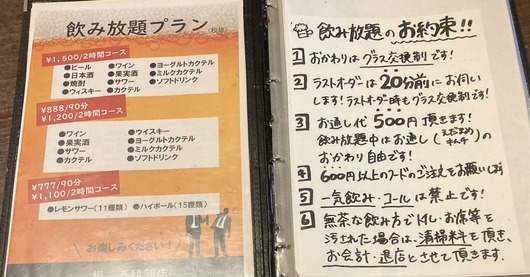 飲み放題プラン(税抜)
¥1,500/2時間コース
●ビール ●ワイン ●ヨーグルトカクテル
●日本酒 ●果実酒 ●ミルクカクテル
●焼酎 ●サワー ●ソフトドリンク
●ウィスキー ●カクテル
¥888/90分
¥1,200/2時間コース
●ワイン ●ウイスキー
●果実酒 ●ヨーグルトカクテル
●サワー ●ミルクカクテル
●カクテル ●ソフトドリンク
¥777/90分
¥1,100/2時間コース
●レモンサワー(11種類) ●ハイボール(15種類)
お楽しみください!
飲み放題のお約束!!
1 おかわりはグラス交換制です!
2 ラストオーダーは20分前にお伺い
します!ラストオーダー時もグラス交換制です!
3 お通し代500円頂きます!
飲み放題中はお通し(えだまめキムチ)の
おかわり自由です!
4 600円以上のフードのご注文をお願いします
5 一気飲み・コールは禁止です!
6 無茶な飲み方でトイレ・お席等を
汚された場合は、清掃料を頂き、
お会計・退店とさせて頂きます。